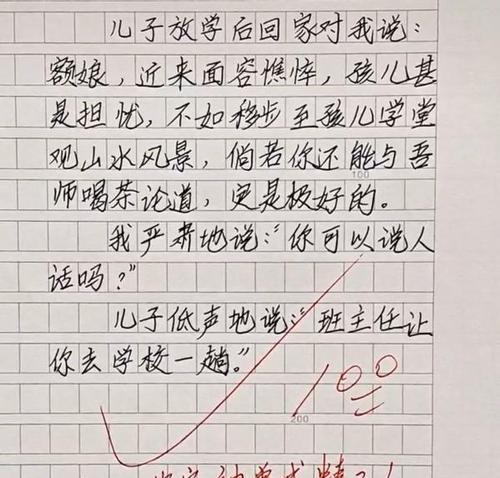 儿子放学后回家对我说:
额娘，近来面容憔悴，孩儿甚
是担忧，不如移步至孩儿学堂
观山水风景，倘若你还能与吾
师喝茶论道，更是极好的。
100
我严肃地说:"你可以说人
话吗?"
儿子低声地说:"班主任让
你去学校一趟。"
100
200